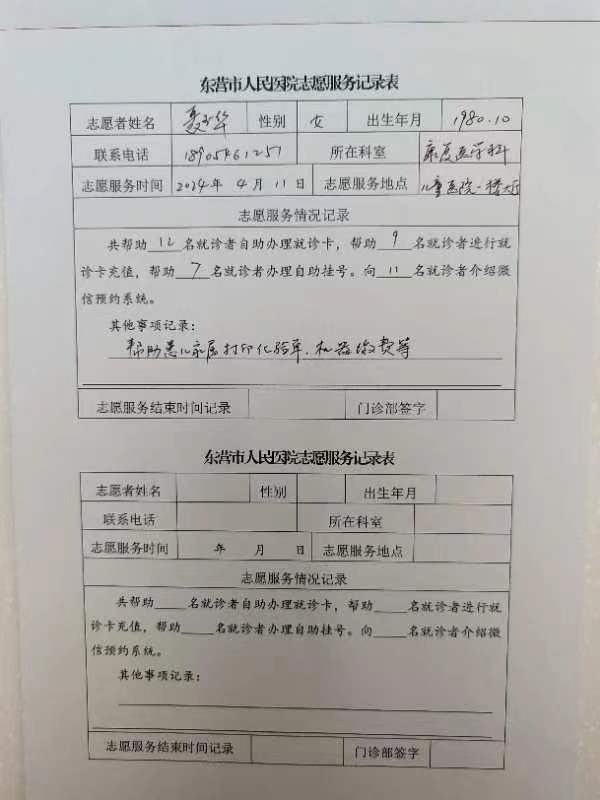 东营市人民医院志愿服务记录表
志愿者姓名 性别 女 出生年月 1980.10
联系电话 18905461257 所在科室 康复医学科
志愿服务时间 2024年4月11日 志愿服务地点 儿童医院一楼大厅
志愿服务情况记录
共帮助12名就诊者自助办理就诊卡，帮助9名就诊者进行就
诊卡充值，帮助7名就诊者办理自助挂号。向11名就诊者介绍微
信预约系统。
其他事项记录：
帮助患儿家属打印化验单、机器缴费等
志愿服务结束时间记录 门诊部签字
东营市人民医院志愿服务记录表
志愿者姓名 性别 出生年月
联系电话 所在科室
志愿服务时间 年 月 日 志愿服务地点
志愿服务情况记录
共帮助____名就诊者自助办理就诊卡，帮助____名就诊者进行就
诊卡充值，帮助____名就诊者办理自助挂号。向____名就诊者介绍微
信预约系统。
其他事项记录：
志愿服务结束时间记录 门诊部签字